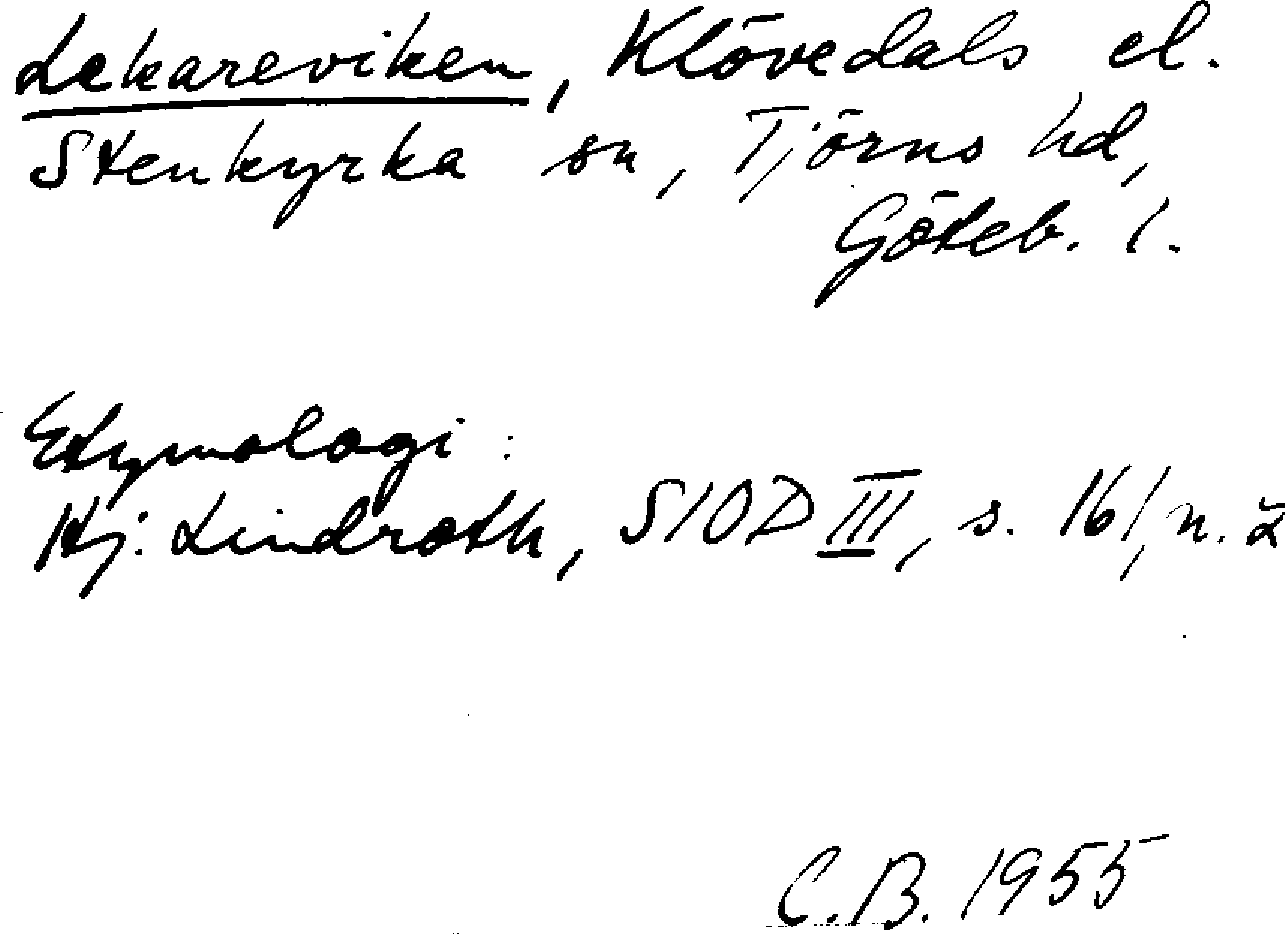 Lekareviken, Klövedals el.
Stenkyrka sn, Tjörns hd,
Göteb. l.
Etymologi:
Hj. Lindroth, SIOD III, s. 161, n. 2
C.B. 1955